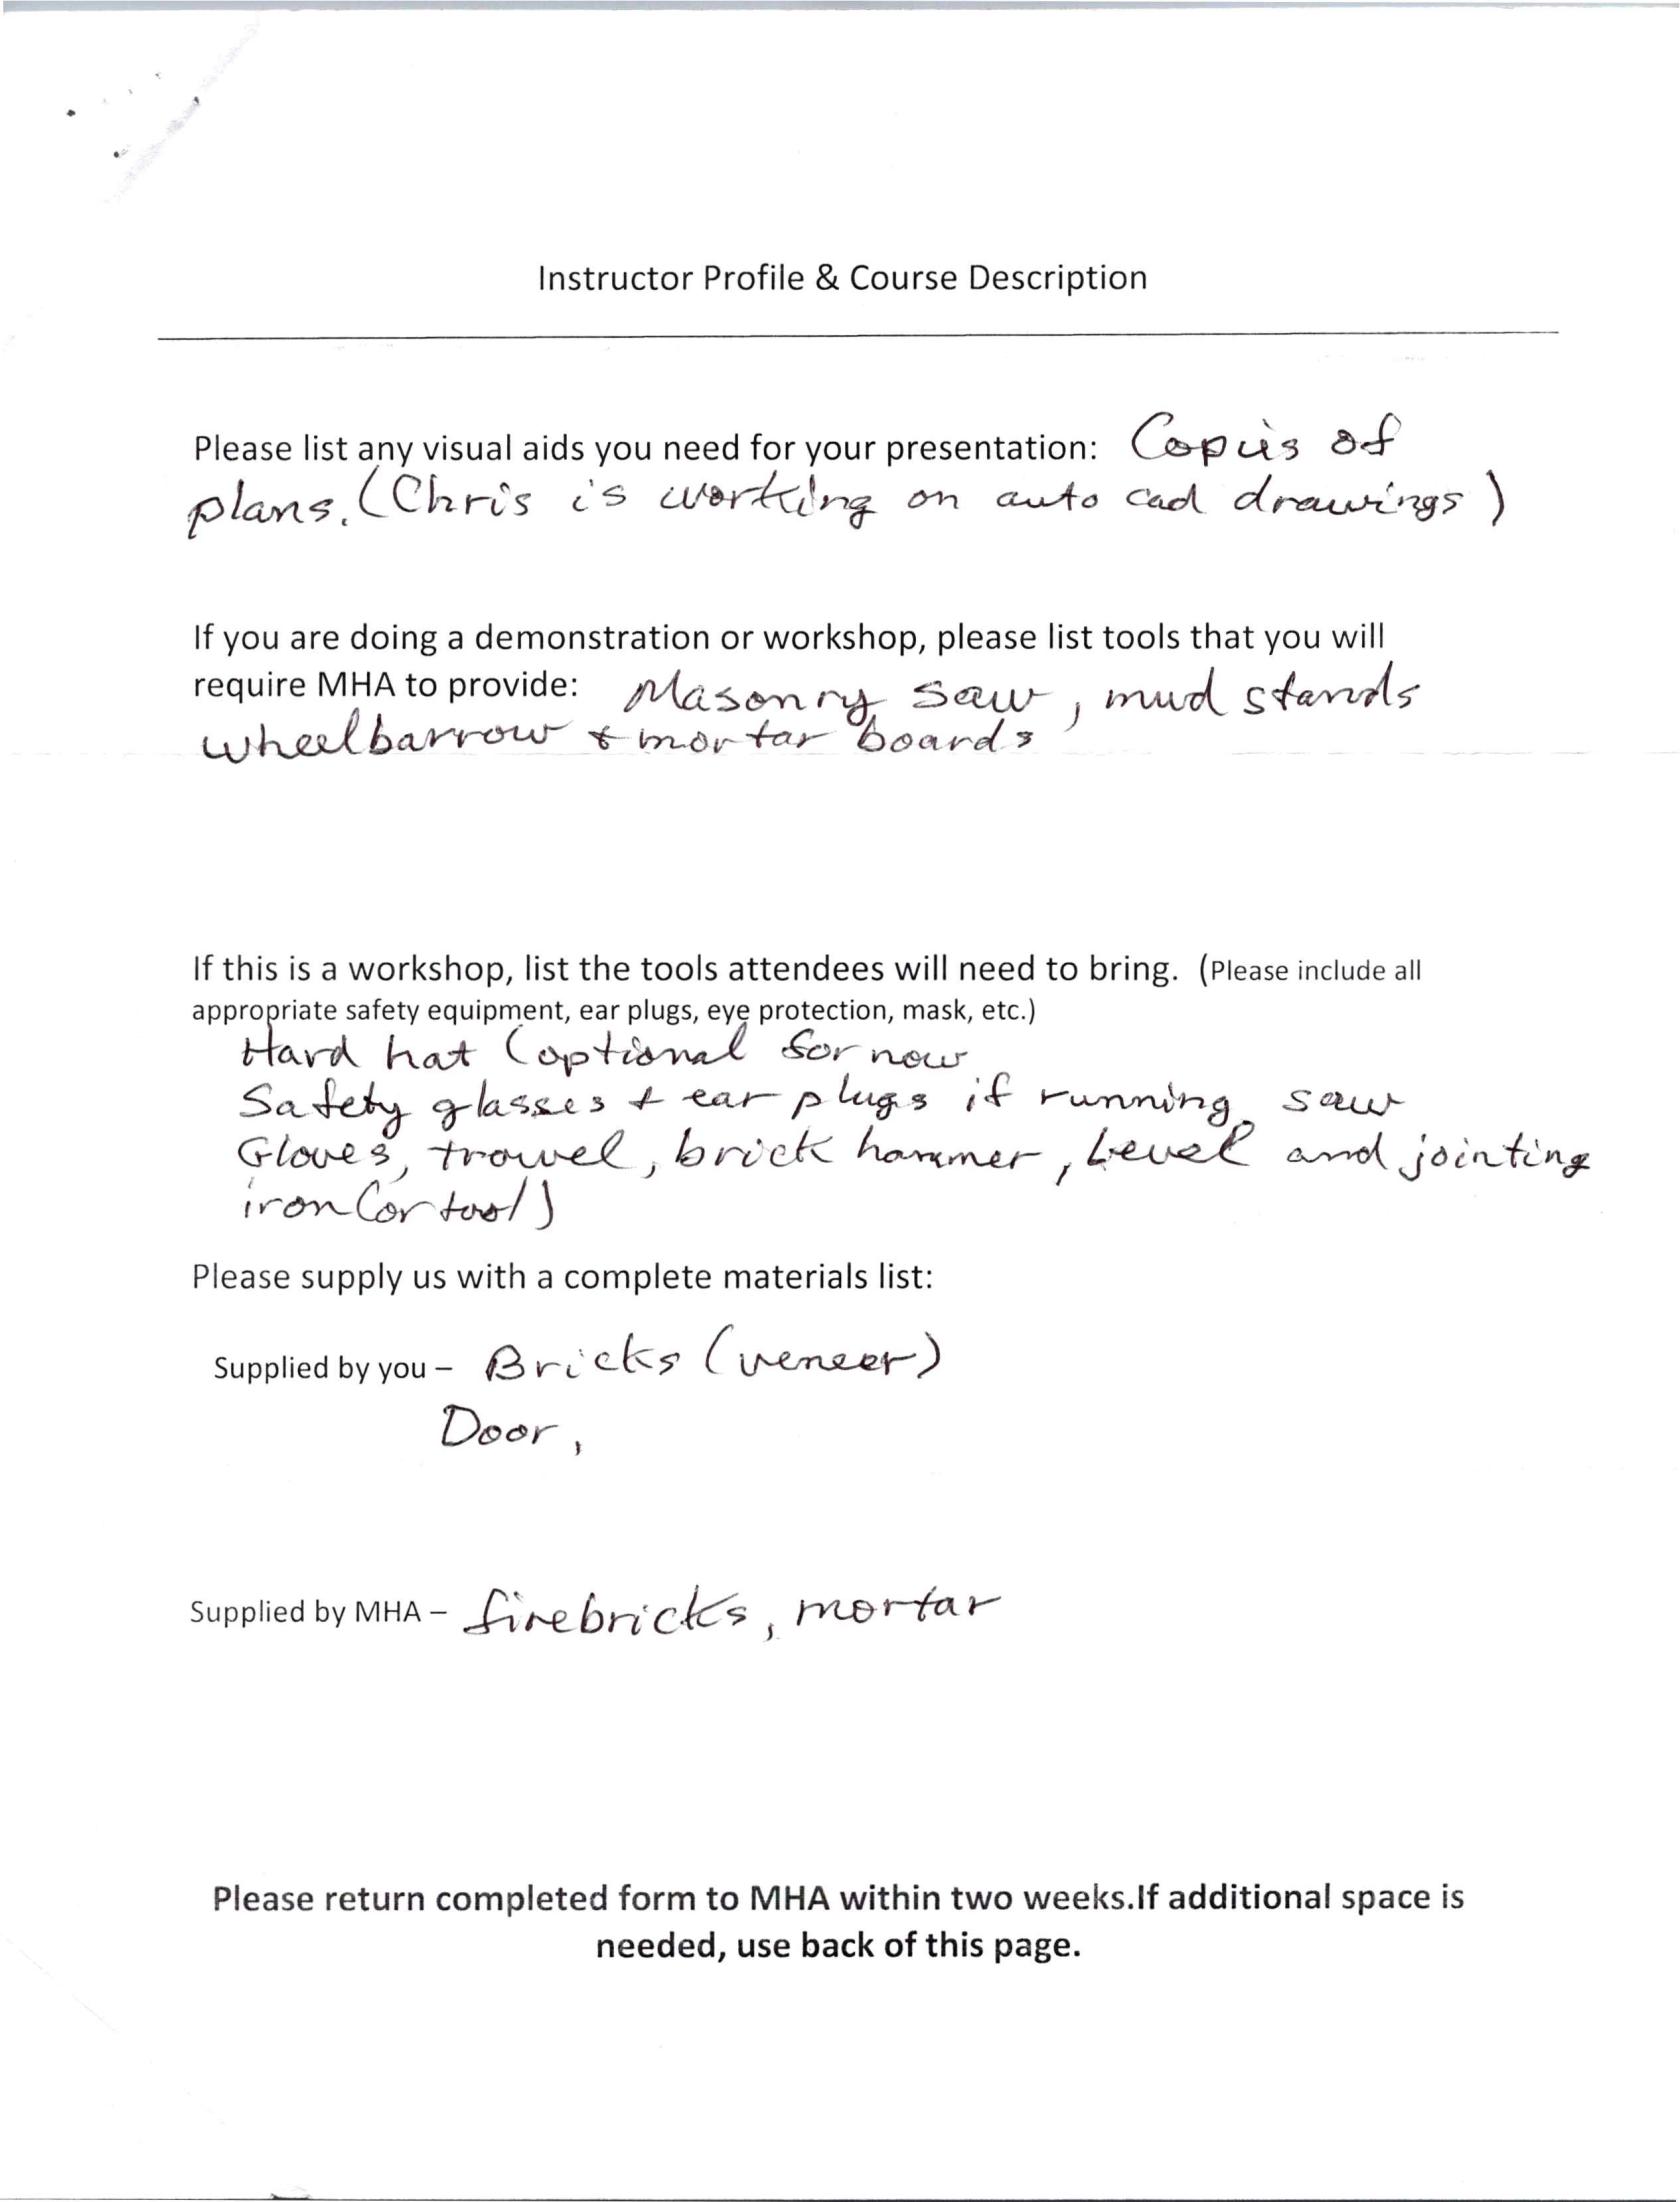 Instructor Profile & Course Description
Please list any visual aids you need for your presentation: Copies of
plans. (Chris is working on auto cad drawings)
If you are doing a demonstration or workshop, please list tools that you will
require MHA to provide: Masonry saw, mud stands
wheelbarrow & mortar boards
If this is a workshop, list the tools attendees will need to bring. (Please include all
appropriate safety equipment, ear plugs, eye protection, mask, etc.)
Hard hat (optional for now
Safety glasses + ear plugs if running saw
Gloves, trowel, brick hammer, Level and jointing
iron (or tool)
Please supply us with a complete materials list:
Supplied by you – Bricks (veneer)
Door,
Supplied by MHA – firebricks, mortar
Please return completed form to MHA within two weeks.If additional space is
needed, use back of this page.